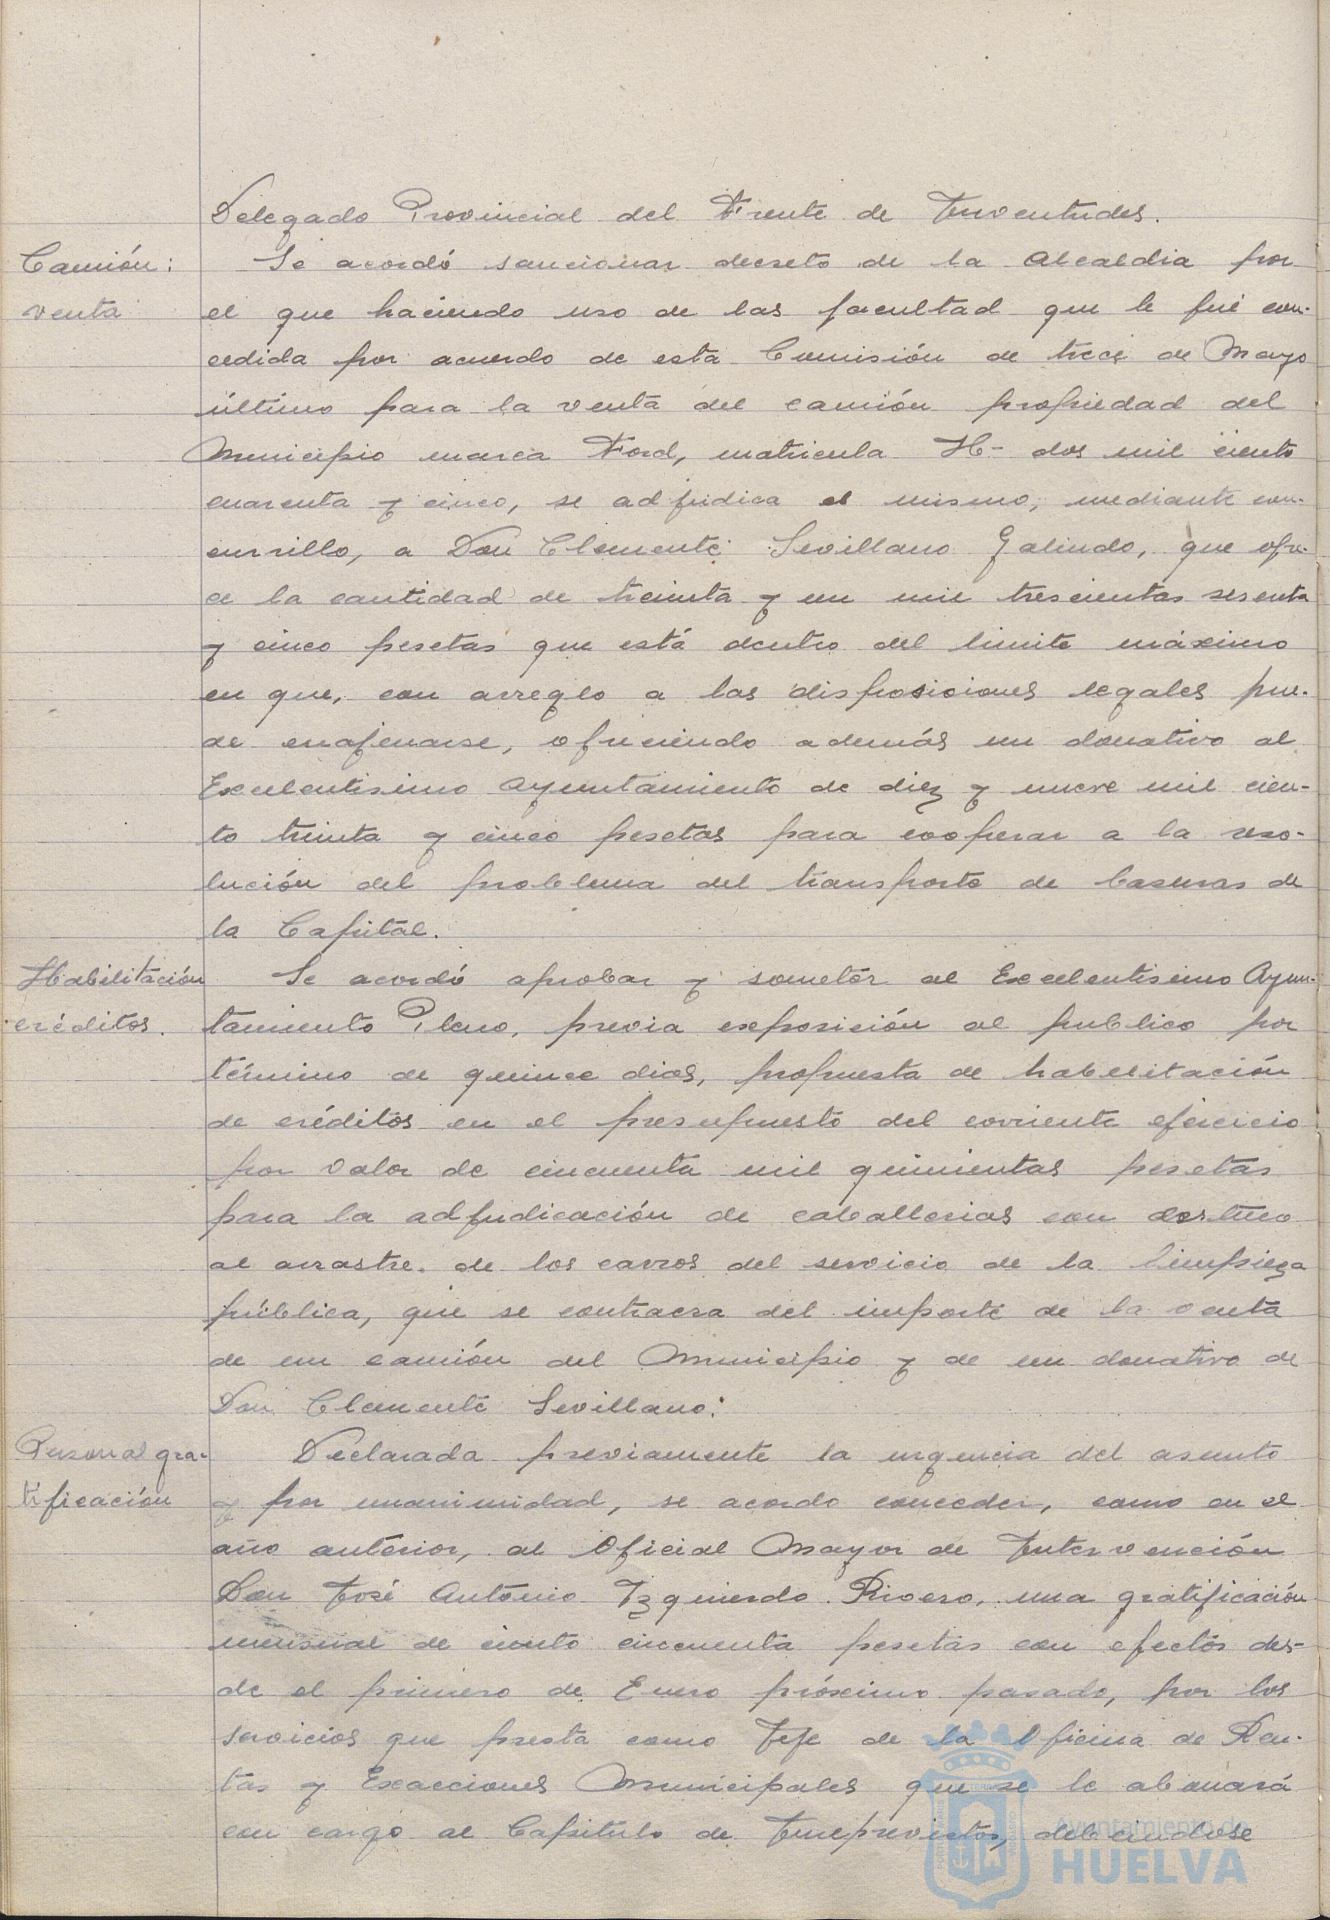 Delegado Provincial del Frente de Juventudes.
Camión:
venta
Se acordó sancionar decreto de la Alcaldia por
el que haciendo uso de las facultad que le fué con-
cedida por acuerdo de esta Comisión de trece de Mayo
último para la venta del camión propiedad del
Municipio marca Ford, matricula H- dos mil ciento
cuarenta y cinco, se adjudica el mismo, mediante con-
cursillo, a Don Clemente Sevillano Galindo, que ofre-
ce la cantidad de treinta y un mil trescientas sesenta
y cinco pesetas que está dentro del limite máximo
en que, con arreglo a las disposiciones legales pue-
de enajenarse, ofreciendo además un donativo al
Excelentisimo Ayuntamiento de diez y nueve mil cien-
to treinta y cinco pesetas para cooperar a la reso-
lución del problema del transporte de basuras de
la Capital.
Habilitación
créditos.
Se acordó aprobar y someter al Excelentisimo Ayun-
tamiento Pleno, previa exposición al publico por
término de quince dias, propuesta de habilitación
de créditos en el presupuesto del corriente ejercicio
por valor de cincuenta mil quinientas pesetas
para la adjudicación de caballerias con destino
al arrastre de los carros del servicio de la limpieza
pública, que se contraera del importe de la venta
de un camión del Municipio y de un donativo de
Don Clemente Sevillano.
Personal gra-
tificación
Declarada previamente la urgencia del asunto
y por unanimidad, se acordo conceder, como en el
año anterior, al Oficial Mayor de Intervención
Don José Antonio Izquierdo Rivero, una gratificación
mensual de ciento cincuenta pesetas con efectos des-
de el primero de Enero próximo pasado, por los
servicios que presta como Jefe de la Oficina de Ren-
tas y Exacciones Municipales que se le abonará
con cargo al Capitulo de Imprevistos, debiendose
Ayuntamiento de
HUELVA